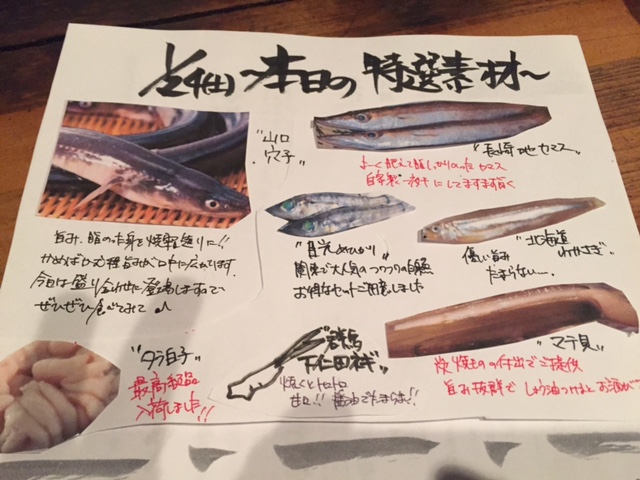 1/24(土)〜本日の特選素材〜
"山口
穴子"
旨み、脂のった身を焼
かめばかむ程旨みが口中に広がります。
今日は盛り合わせに登場しますので
ぜひぜひ食べてみて♪
"長崎 地カマス"
よーく肥えて脂しっかりのったカマス
自家製一夜干にしてますます旨く
"目光 めひかり"
関東で大人気のつつうの白身
お得なセットご用意しました
"北海道
わかさぎ"
優しい旨み
たまらない〜。
"マテ貝"
炭焼きの付出でご提供
旨み抜群でしょう油つけるとお酒が
"群馬
下仁田ネギ"
焼くとトロトロ
甘口!! 醤油でたまらなく!!
"タラ白子"
最高級品
入荷しました!!